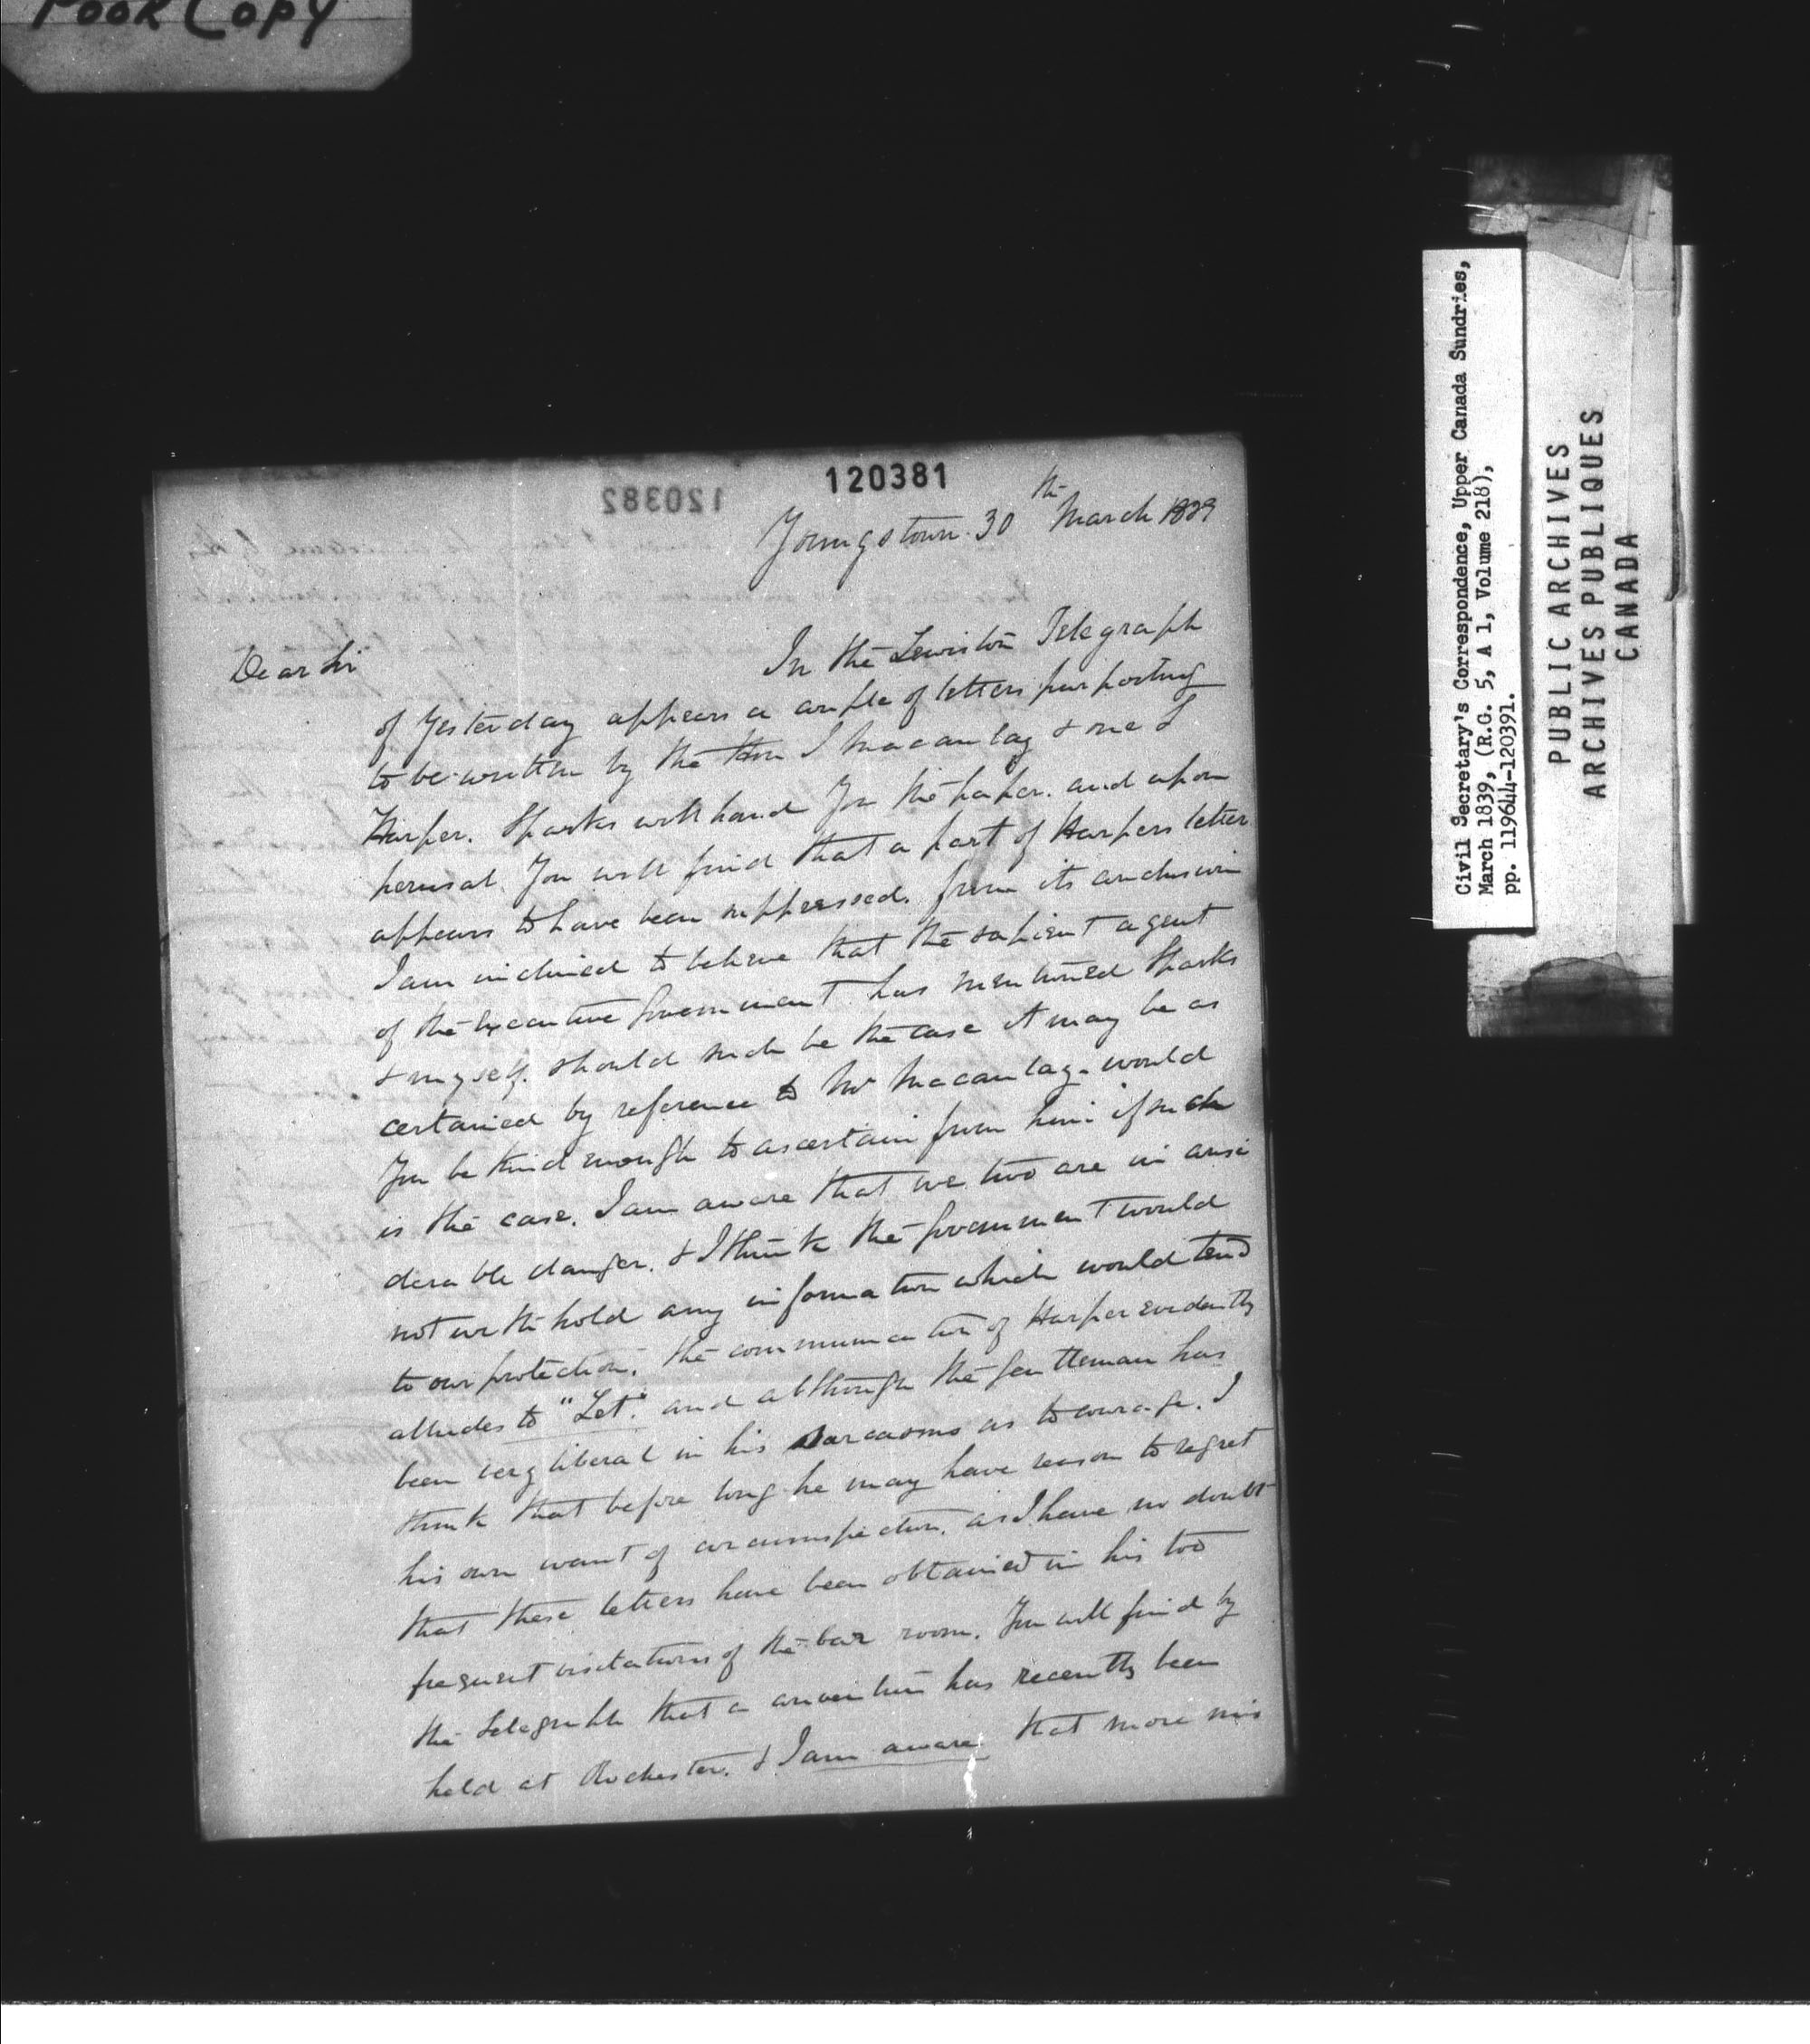 POOR COPY
120381
120382
Youngstown 30th March 1839
Dear Sir
In the Lewiston Telegraph
of Yesterday appears a couple of letters purporting
to be written by the Hon J Macaulay & one J
Harper. Sparks will hand You the paper. and upon
perusal You will find that a part of Harpers letter
appears to have been suppressed. from its conclusion
I am inclined to believe that the sapient agent
of the Executive Government has mentioned Sparks
& myself. should such be the case it may be as
certained by reference to Mr Macaulay. would
You be kind enough to ascertain from him if such
is the case. I am aware that we two are in consi
derable danger. & I think the Government would
not withhold any information which would tend
to our protection. the communication of Harper evidently
alludes to "Let". and although the gentleman has
been very liberal in his sarcasms as to courage. I
think that before long he may have reason to regret
his own want of circumspection. as I have no doubt
that these letters have been obtained in his too
frequent visitations of the bar room. You will find by
the Telegraph that a convention has recently been
held at Rochester. & I am aware that more mis
Civil Secretary's Correspondence, Upper Canada Sundries,
March 1839, (R.G. 5, A 1, Volume 218),
pp. 119644-120391.
PUBLIC ARCHIVES
ARCHIVES PUBLIQUES
CANADA